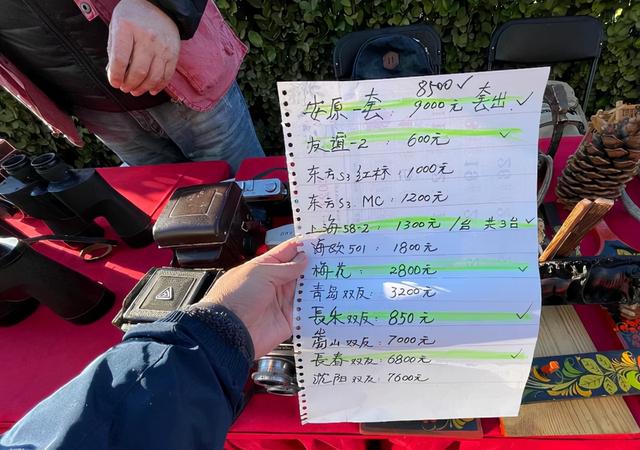 8500✓
安原一套：9000元 套出✓
友谊-2：600元 ✓
东方S3 红标：1000元
东方S3 MC：1200元
上海58-2：1300元/台 共3台✓
海欧501：1800元
梅花：2800元 ✓
青岛双反：3200元
長乐双反：850元 ✓
嵩山双反：7000元
長春双反：6800元 ✓
沈阳双反：7600元